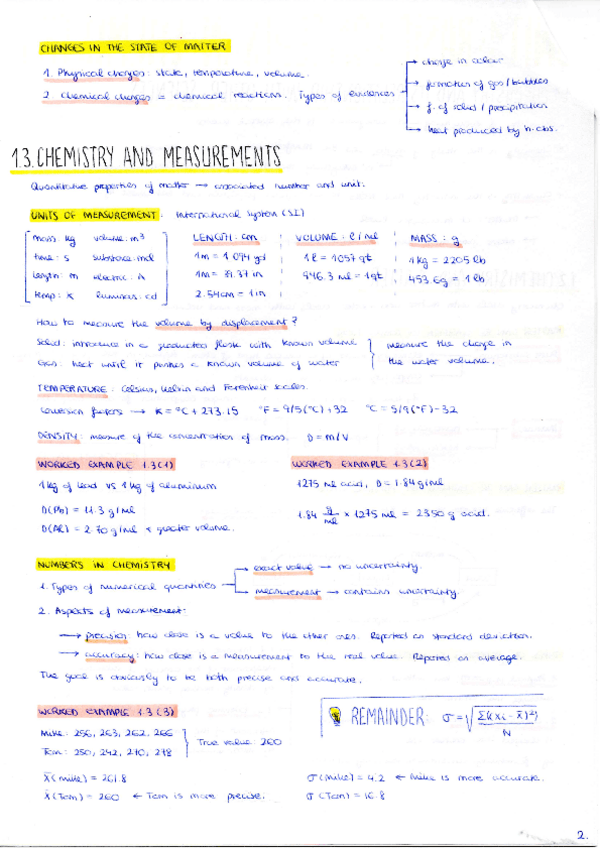 CHANGES IN THE STATE OF MATTER
1. Physical changes: state, temperature, volume.
2. Chemical changes = chemical reactions. Types of evidences
→ change in colour
→ formation of gas / bubbles
→ f. of solid / precipitation
→ heat produced by
1.3. CHEMISTRY AND MEASUREMENTS
Quantitative properties of matter → associated number and unit.
UNITS OF MEASUREMENT: International System (SI)
mass: kg volume: m³
time: s substance: mol
length: m electric: A
temp: K luminous: cd
LENGTH: cm
1m = 1'094 yd
1m = 39.37 in
2.54cm = 1 in
VOLUME: l / ml
1 l = 1'057 qt
946.3 ml = 1 qt
MASS: g
1 kg = 2'205 lb
453.6g = 1 lb
How to measure the volume by displacement?
Solid: introduce in a graduated flask with known volume
Gas: heat until it pushes a known volume of water
measure the change in
the water volume.
TEMPERATURE: Celsius, Kelvin and Farenheit scales.
Conversion factors → K = °C + 273.15 °F = 9/5(°C)+32 °C = 5/9(°F)-32
DENSITY: measure of the concentration of mass. D = m/V
WORKED EXAMPLE 1.3(1)
1 kg of lead vs 1 kg of aluminum
D(Pb) = 11.3 g/ml
D(Al) = 2.70 g/ml < greater volume.
WORKED EXAMPLE 1.3(2)
1275 ml acid, D = 1.84 g/ml
1.84 g/ml × 1275 ml = 2350 g acid.
NUMBERS IN CHEMISTRY
1. Types of numerical quantities
→ exact value → no uncertainty.
→ measurement → contains uncertainty.
2. Aspects of measurement:
→ precision: how close is a value to the other ones. Reported on standard deviation.
→ accuracy: how close is a measurement to the real value. Reported on average.
The goal is obviously to be both precise and accurate.
WORKED EXAMPLE 1.3(3)
Mike: 256, 263, 262, 266
Tom: 250, 242, 270, 278
True value: 260
REMAINDER: σ = √(Σ(xi - x̄)²) / N
x̄(Mike) = 261.8
x̄(Tom) = 260 ← Tom is more precise.
σ(Mike) = 4.2 ← Mike is more accurate.
σ(Tom) = 16.8
2.